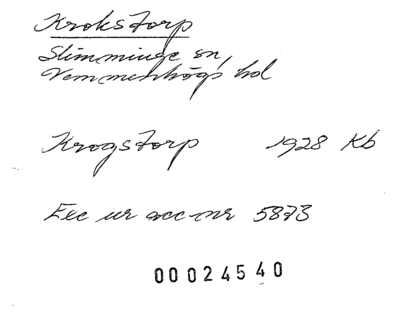 Krokstorp
Slimminge sn,
Vemmenhögs hd
Krogstorp 1928 Kb
Exc ur acc nr 5873
00024540